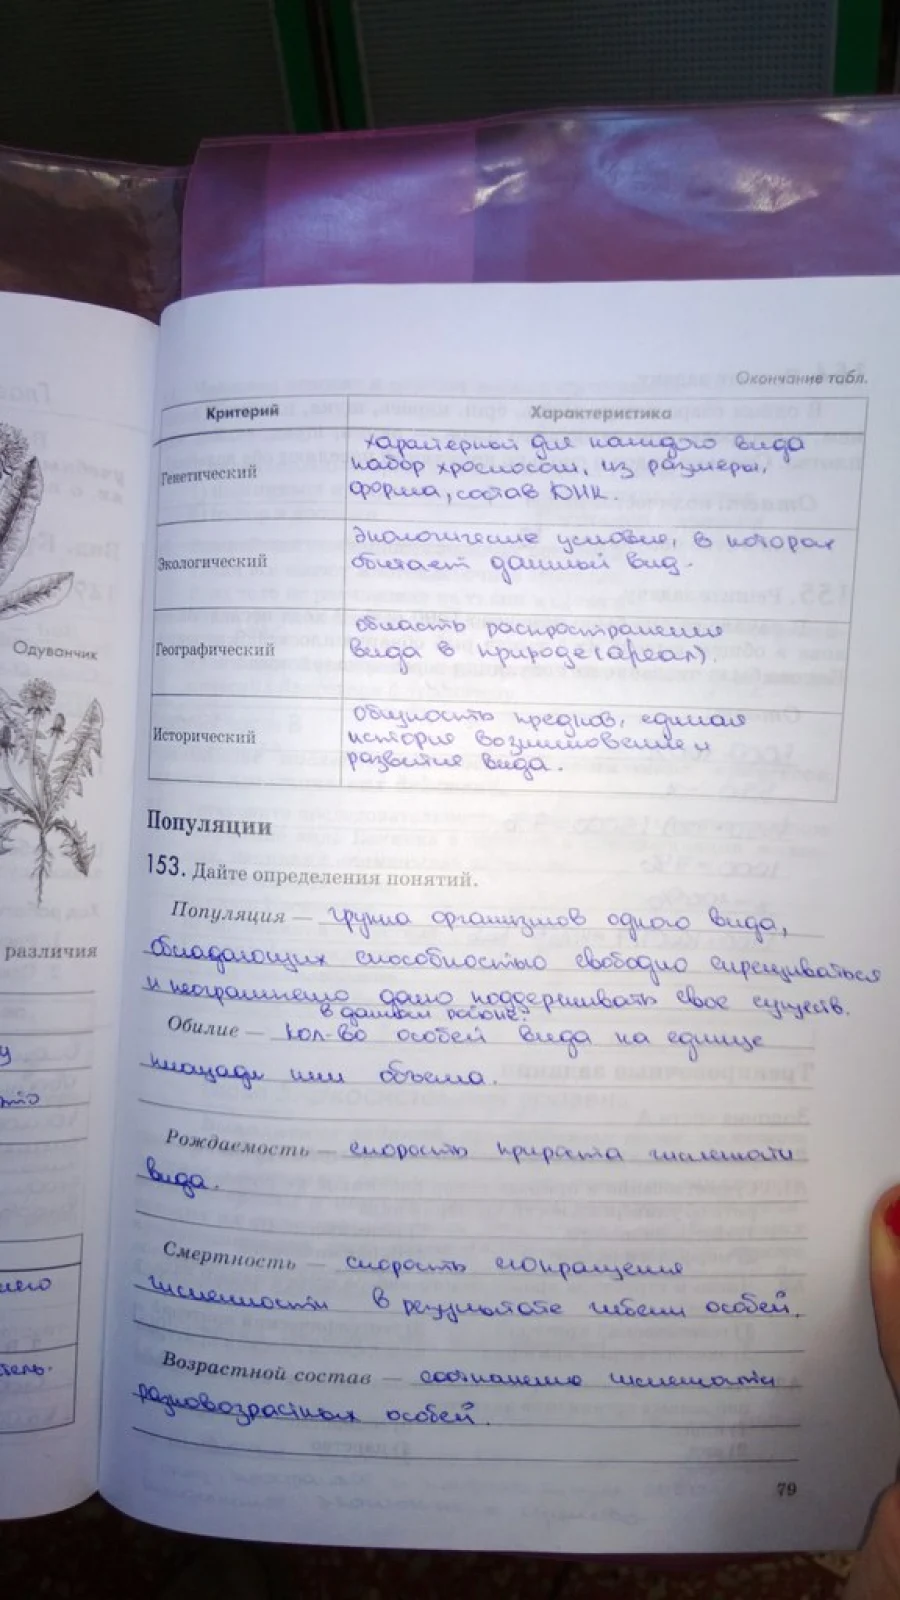 Окончание табл.
Критерий Характеристика
Генетический
характерный для каждого вида
набор хромосом, их размеры,
форма, состав ДНК.
Экологический
экологические условия, в которых
обитает данный вид.
Географический
область распространения
вида в природе (ареал).
Исторический
Общность предков, единая
история возникновения и
развития вида.
Одуванчик
различия
Популяции
153. Дайте определения понятий.
Популяция — группа организмов одного вида,
обладающих способностью свободно скрещиваться
и неограниченно долго поддерживать свое существ.
в данном районе.
Обилие — кол-во особей вида на единице
площади или объема.
Рождаемость — скорость прироста численности
вида.
Смертность — скорость сокращения
численности в результате гибели особей.
Возрастной состав — соотношение численности
разновозрастных особей.
79